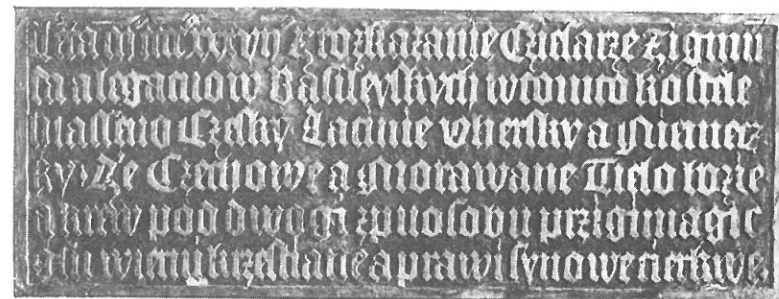 z rozkazanie Czieſarze Zigmu
da alegatuow Baſileyſkych wtomto koſtele
hlaſſeno Czeſky Latinie Vherſky a Niemecz
ky Ze Czechowe a Morawane Tielo bozie
a krew pod dwogi zpuoſobu przigimagic
wierni krzeſtiane a prawi ſynowe cierkwe